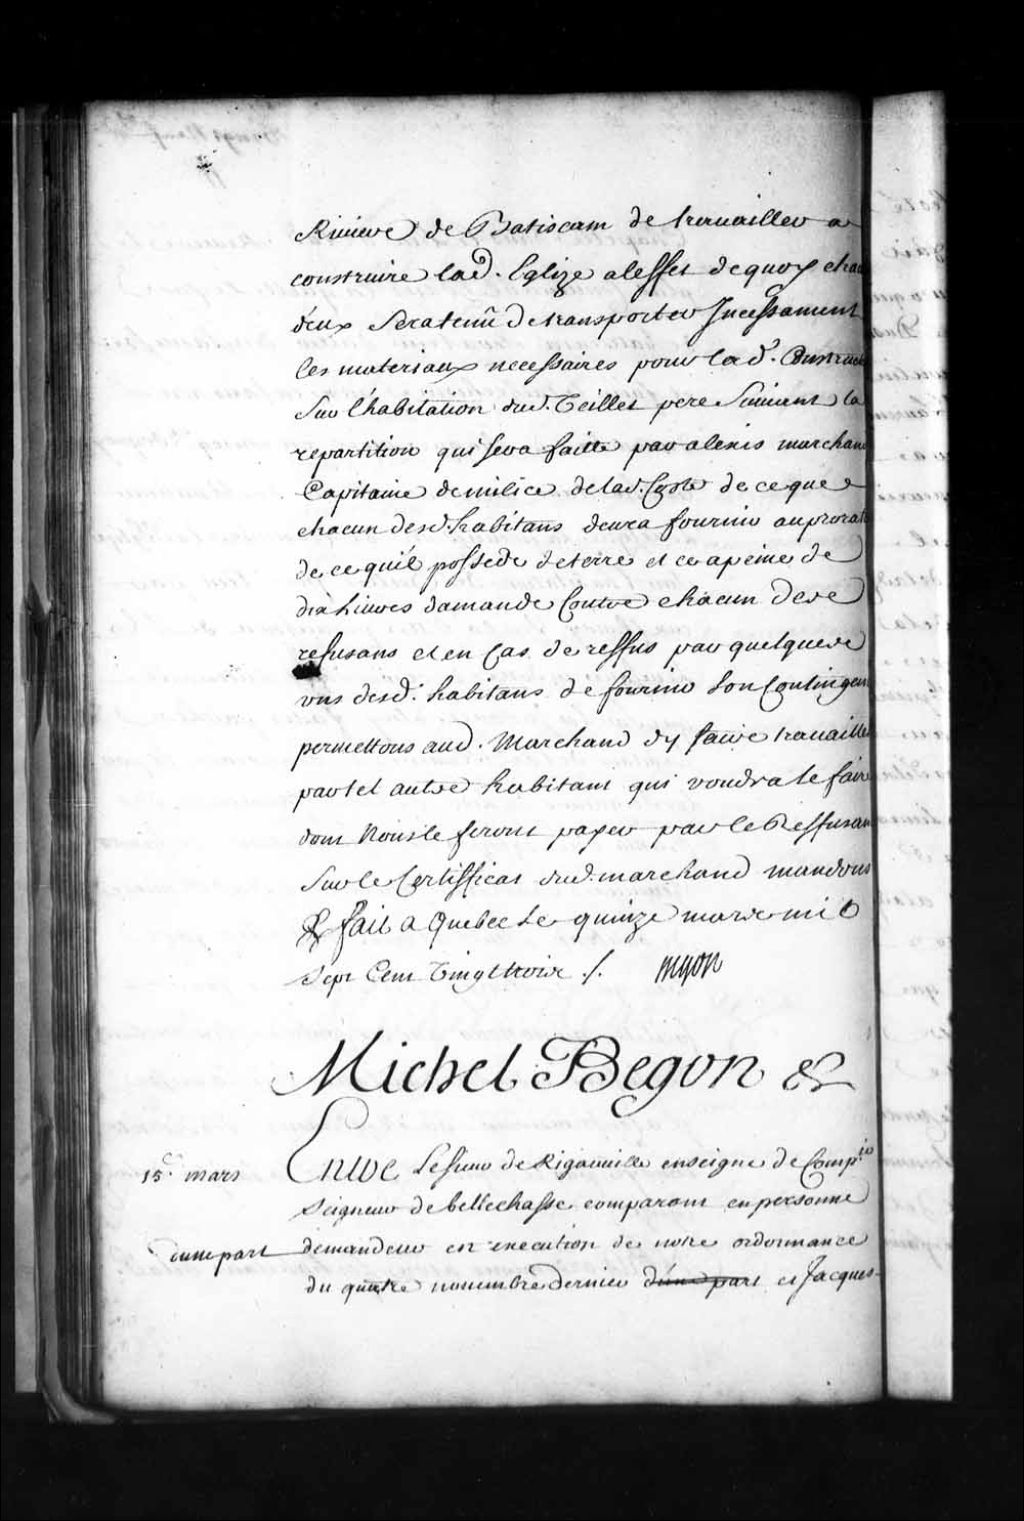 Riuiere de Batiscam de trauailler a
construire lad. Eglize a leffet de quoy chac
deux sera tenu de transporter Incessament
les materiaux necessaires pour lad. Construct
sur l'habitation dud. Teillet pere suiuant la
repartition qui sera faitte par alexis marchan
Capitaine de milice de lad. Coste de ce que
chacun desd. habitans deura fournir au prorat
de ce quil possede de terre et ce a peine de
dix liures damande Contre chacun des
refusans et en Cas de reffus par quelques
uns desd. habitans de fournir son Contingen
permettons aud. Marchand dy faire trauaille
par tel autre habitant qui voudra le fair
dont Nous le ferons payer par le Reffusan
sur le Certifficat dud. marchand mandons
& fait a Quebec le quinze mars mil
sept Cent Vingt trois ./. Begon
Michel Begon &
15e. mars
Entre Le sieur de Rigauuille enseigne de Compie
Seigneur de bellechasse comparant en personne
dune part
demandeur en execution de notre ordonnance
du quatre nouembre dernier d'une part et Jacques